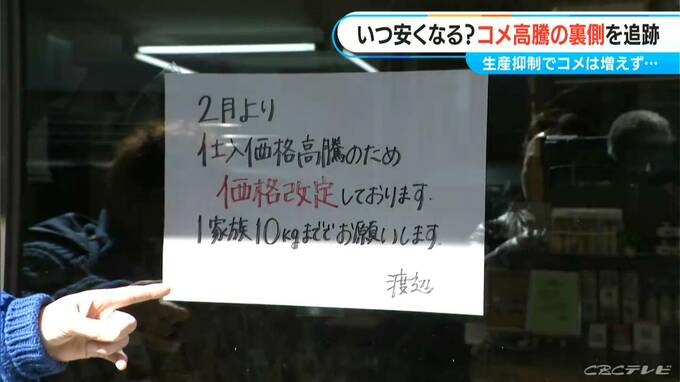 いつ安くなる?コメ高騰の裏側を追跡
生産抑制でコメは増えず…
2月より
仕入価格高騰のため
価格改定しております.
1家族10kgまででお願いします.
渡辺
CBCテレビ